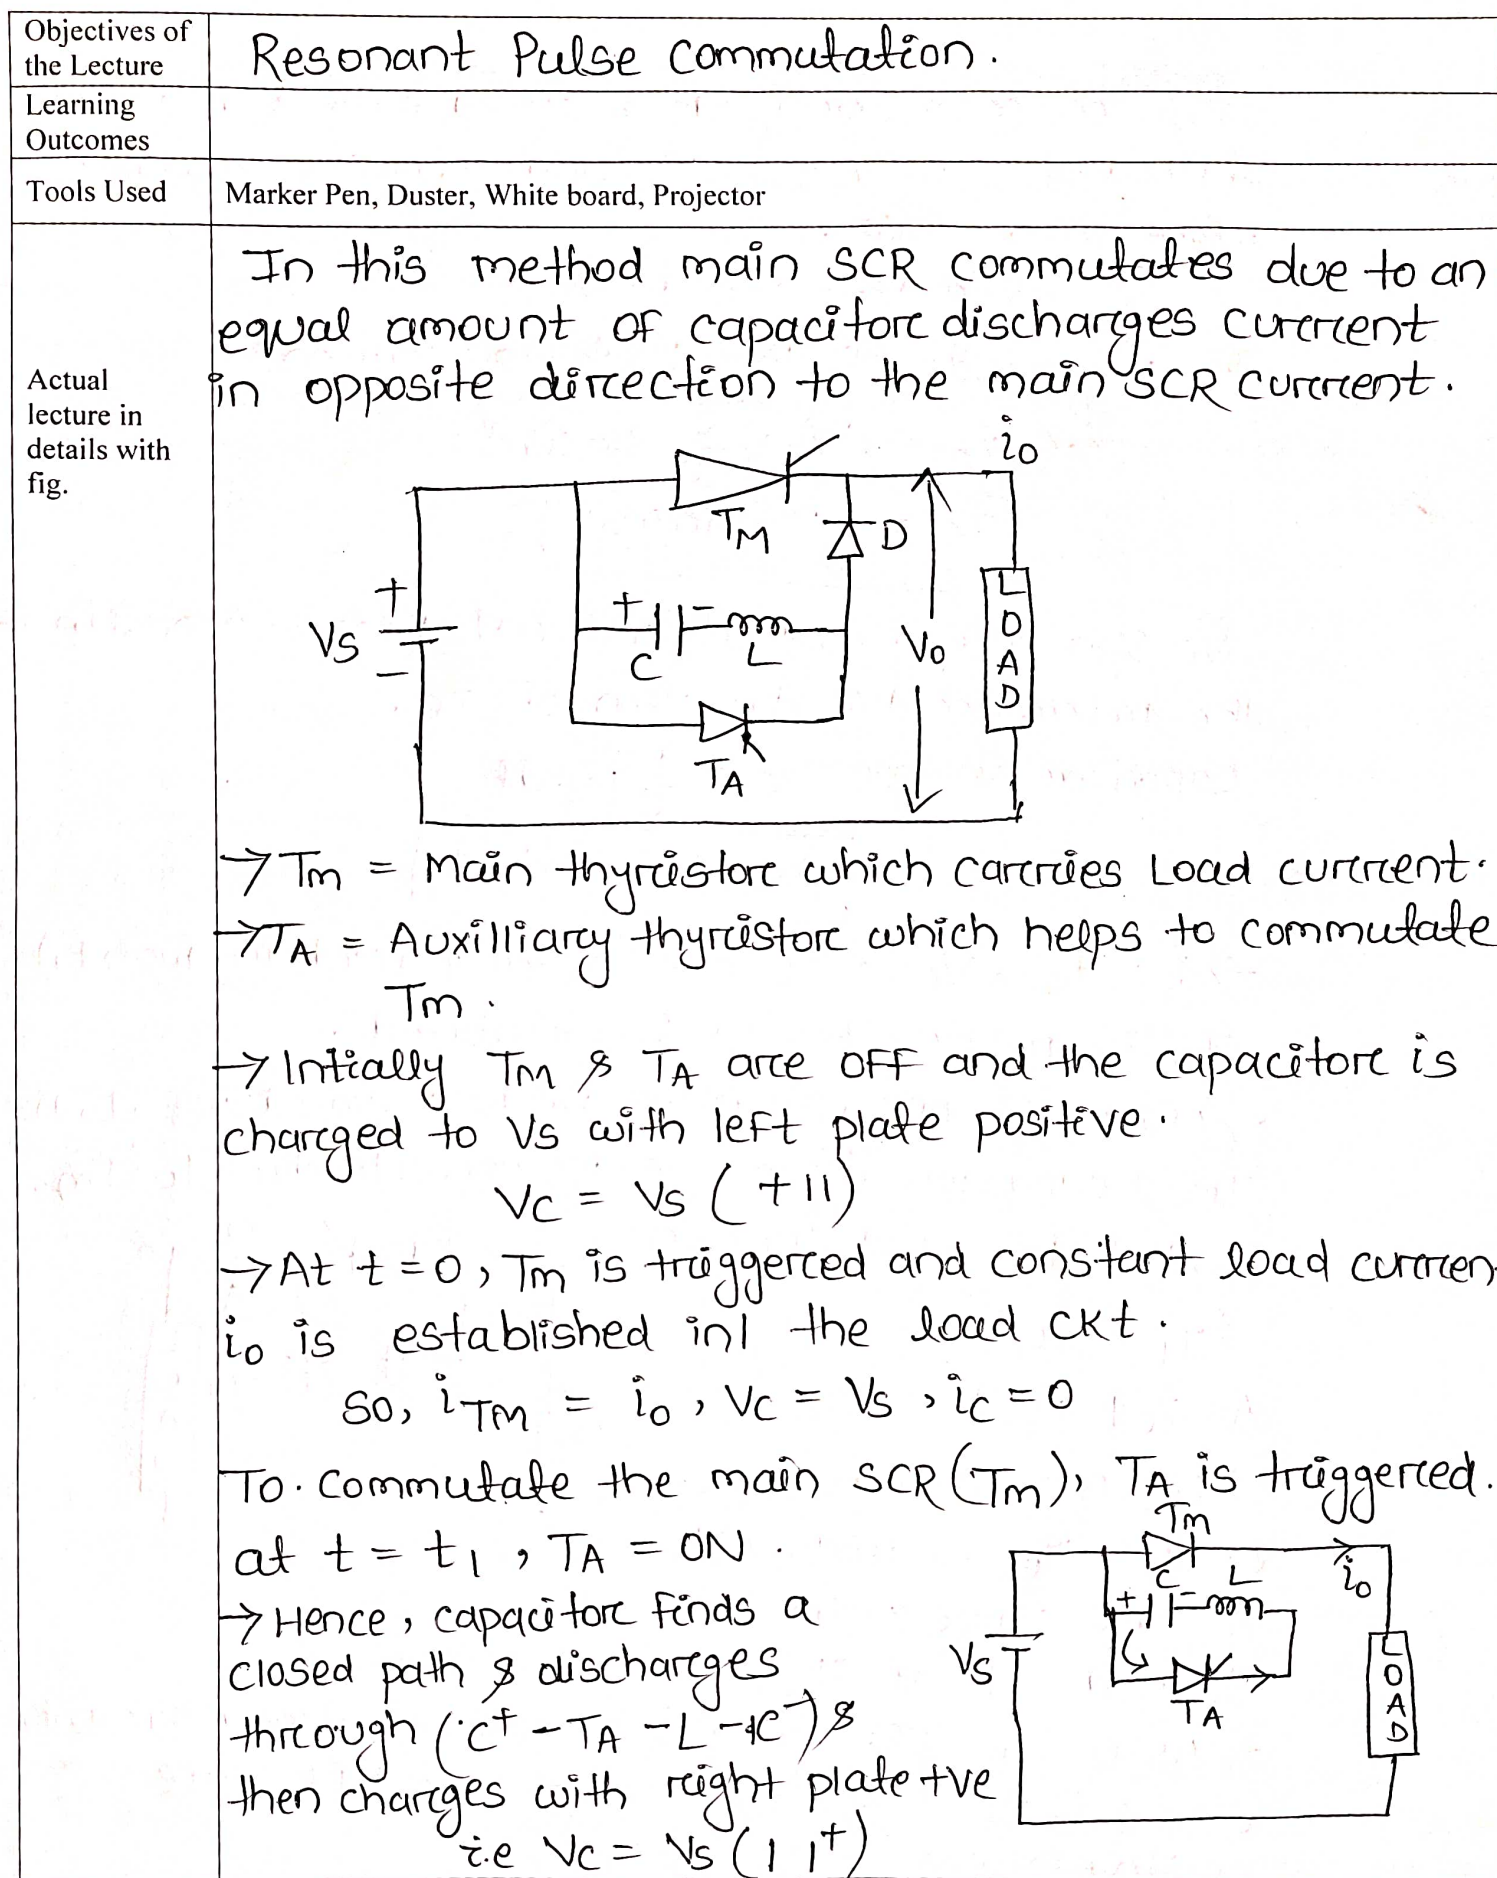 Objectives of
the Lecture
Resonant Pulse commutation.
Learning
Outcomes
Tools Used
Marker Pen, Duster, White board, Projector
Actual
lecture in
details with
fig.
In this method main SCR commutates due to an
equal amount of capacitor discharges current
in opposite direction to the main SCR current.
i₀
TM
D
+
VS
−
+
−
C
L
V₀
LOAD
TA
→ Tm = Main thyristor which carries Load current.
→ TA = Auxilliary thyristor which helps to commutate
Tm.
→ Intially Tm & TA are OFF and the capacitor is
charged to Vs with left plate positive.
VC = VS (+||)
→ At t = 0, Tm is triggered and constant load curren
i₀ is established in the load ckt.
So, iTM = i₀, VC = VS, iC = 0
To commutate the main SCR (Tm), TA is triggered.
at t = t₁, TA = ON.
→ Hence, capacitor finds a
closed path & discharges
through (C⁺ - TA - L - C⁻) &
then charges with right plate +ve
i.e VC = VS (| |⁺)
Tm
i₀
C
L
+
−
VS
TA
LOAD